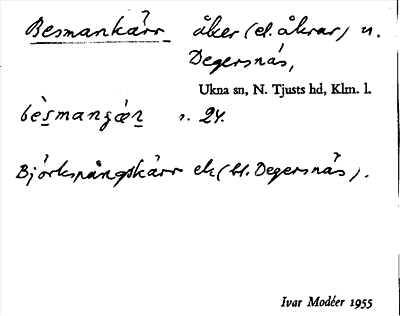 Besmankärr åker (el. åkrar) u.
Degersnäs,
Ukna sn, N. Tjusts hd, Klm. l.
s. 24.
Björkspångskärr ek (bl. Degersnäs).
Ivar Modéer 1955